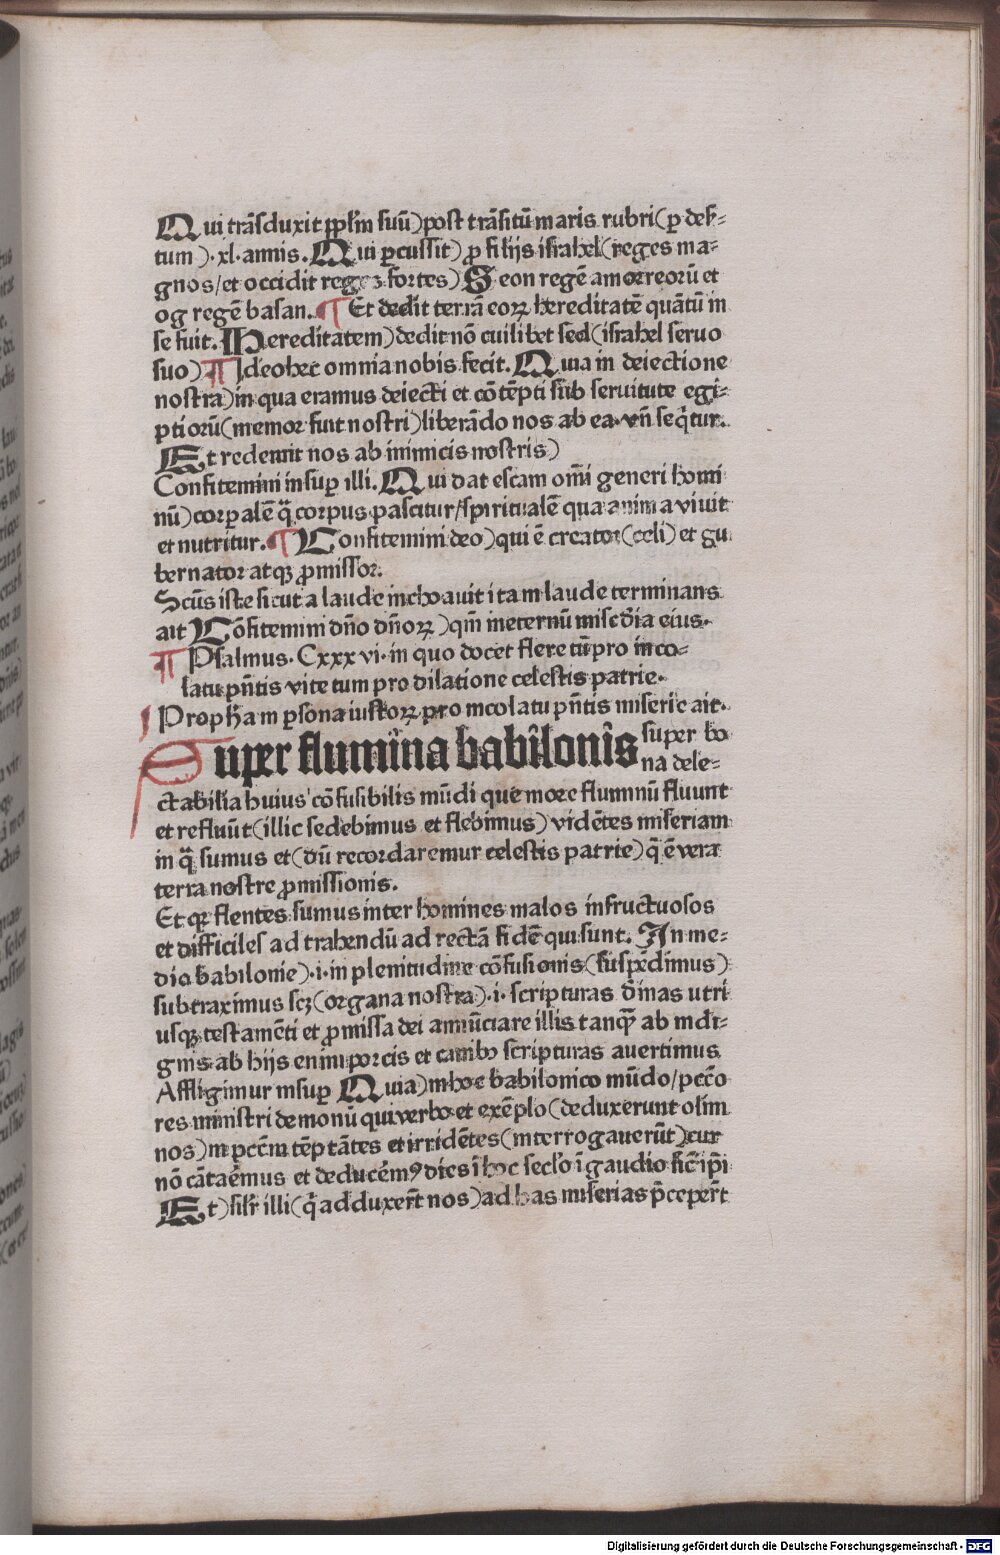 Qui trãsduxit pplm̃ suũ) post trãsitũ maris rubri (ꝑ deser-
tum). xl. annis. Qui ꝑcussit) ꝓ filijs israhel (reges ma-
gnos / et occidit reges fortes) Seon regẽ amorreorũ et
og regẽ basan. ¶ Et dedit terrã eoꝝ hereditatẽ quãtũ in
se fuit. Hereditatem) dedit nõ cuilibet sed (israhel seruo
suo) ¶ Ideo hec omnia nobis fecit. Quia in deiectione
nostra) in qua eramus deiecti et cõtẽpti sub seruitute egi-
ptiorũ (memor fuit nostri) liberãdo nos ab ea. vñ seq̃tur.
Et redemit nos ab inimicis nostris)
Confitemini insuꝑ illi. Qui dat escam om̃i generi homi
nũ) corꝑalẽ q̃ corpus pascitur / spiritualẽ qua anima viuit
et nutritur. ¶ Confitemini deo) qui ẽ creator (celi) et gu
bernator atqꝫ ꝓmissor.
Scũs iste sicut a laude inchoauit ita in laude terminans
ait Cõfitemini dño dñoꝝ) qm̃ in eternũ misc̃dia eius.
¶ Psalmus. Cxxxvi. in quo docet flere tũ pro inco-
latu pñtis vite tum pro dilatione celestis patrie.
Propħa in ꝑsona iustoꝝ pro incolatu pñtis miserie ait.
Super flumina babilonis super bo
na dele-
ctabilia huius cõfusibilis mũdi que more fluminũ fluunt
et refluũt (illic sedebimus et flebimus) vidẽtes miseriam
in q̃ sumus et (dũ recordaremur celestis patrie) q̃ ẽ vera
terra nostre ꝓmissionis.
Et qꝛ flentes sumus inter homines malos infructuosos
et difficiles ad trahendũ ad rectã fidẽ qui sunt. In me-
dio babilonie) .i. in plenitudine cõfusionis (suspẽdimus)
subtraximus scꝫ (organa nostra) .i. scripturas diũinas utri
usqꝫ testamẽti et ꝓmissa dei annũciare illis tanqȝ ab indi-
gnis ab hijs enim porcis et canibꝰ scripturas auertimus
Affligimur insuꝑ Quia) in hoc babilonico mũdo / pctõ
res ministri demonũ qui verbo et exẽplo (deduxerunt olim
nos) in pctm̃ tẽptãtes et irridẽtes (interrogauerũt) cur
nõ cãtaremus et deducem̃ꝰ dies ĩ hoc sclõ ĩ gaudio sic̃ ip̃i
Et) silr̃ illi (q̃ adduxer̃t nos) ad has miserias p̃ceper̃t
Digitalisierung gefördert durch die Deutsche Forschungsgemeinschaft - DFG